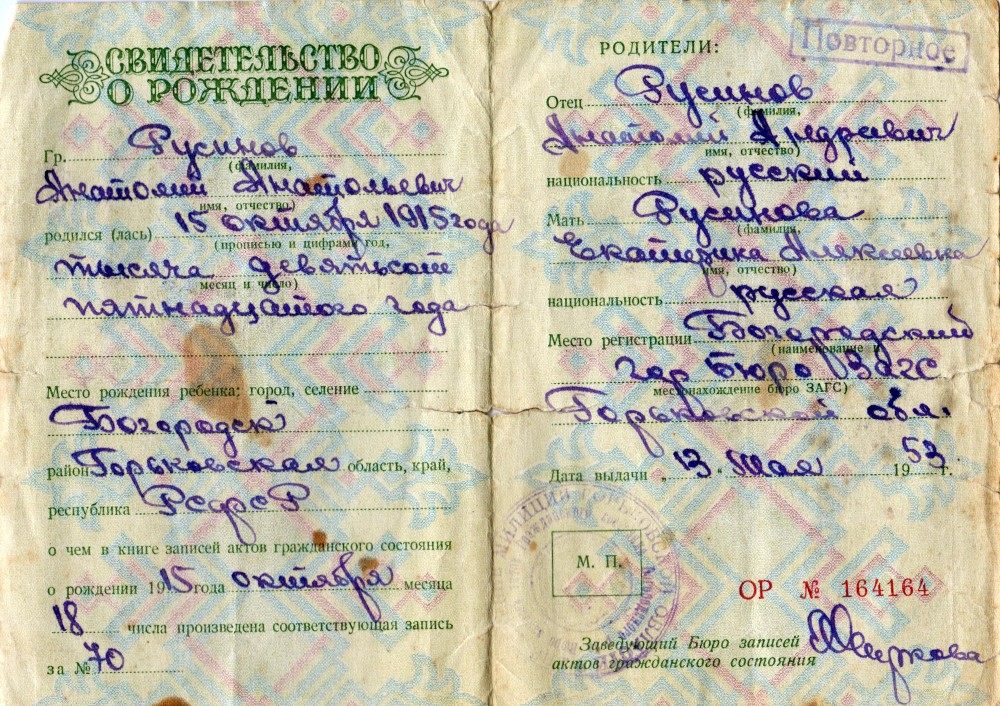 СВИДЕТЕЛЬСТВО
О РОЖДЕНИИ
Гр. Русинов
(фамилия,
Анатолий Анатольевич
имя, отчество)
родился (лась) 15 октября 1915 года
(прописью и цифрами год,
тысяча девятьсот
месяц и число)
пятнадцатого года
Место рождения ребенка: город, селение
Богородск
район Горьковская область, край,
республика РСФСР
о чем в книге записей актов гражданского состояния
о рождении 1915 года октября месяца
18 числа произведена соответствующая запись
за № 70
Повторное
РОДИТЕЛИ:
Отец Русинов
(фамилия,
Анатолий Андреевич
имя, отчество)
национальность русский
Мать Русинова
(фамилия,
Екатерина Алексеевна
имя, отчество)
национальность русская
Место регистрации Богородский
(наименование и
гор бюро ЗАГС
местонахождение бюро ЗАГС)
Горьковской обл.
Дата выдачи „13 мая 1953 г.
М. П.
ОР № 164164
Заведующий Бюро записей
актов гражданского состояния